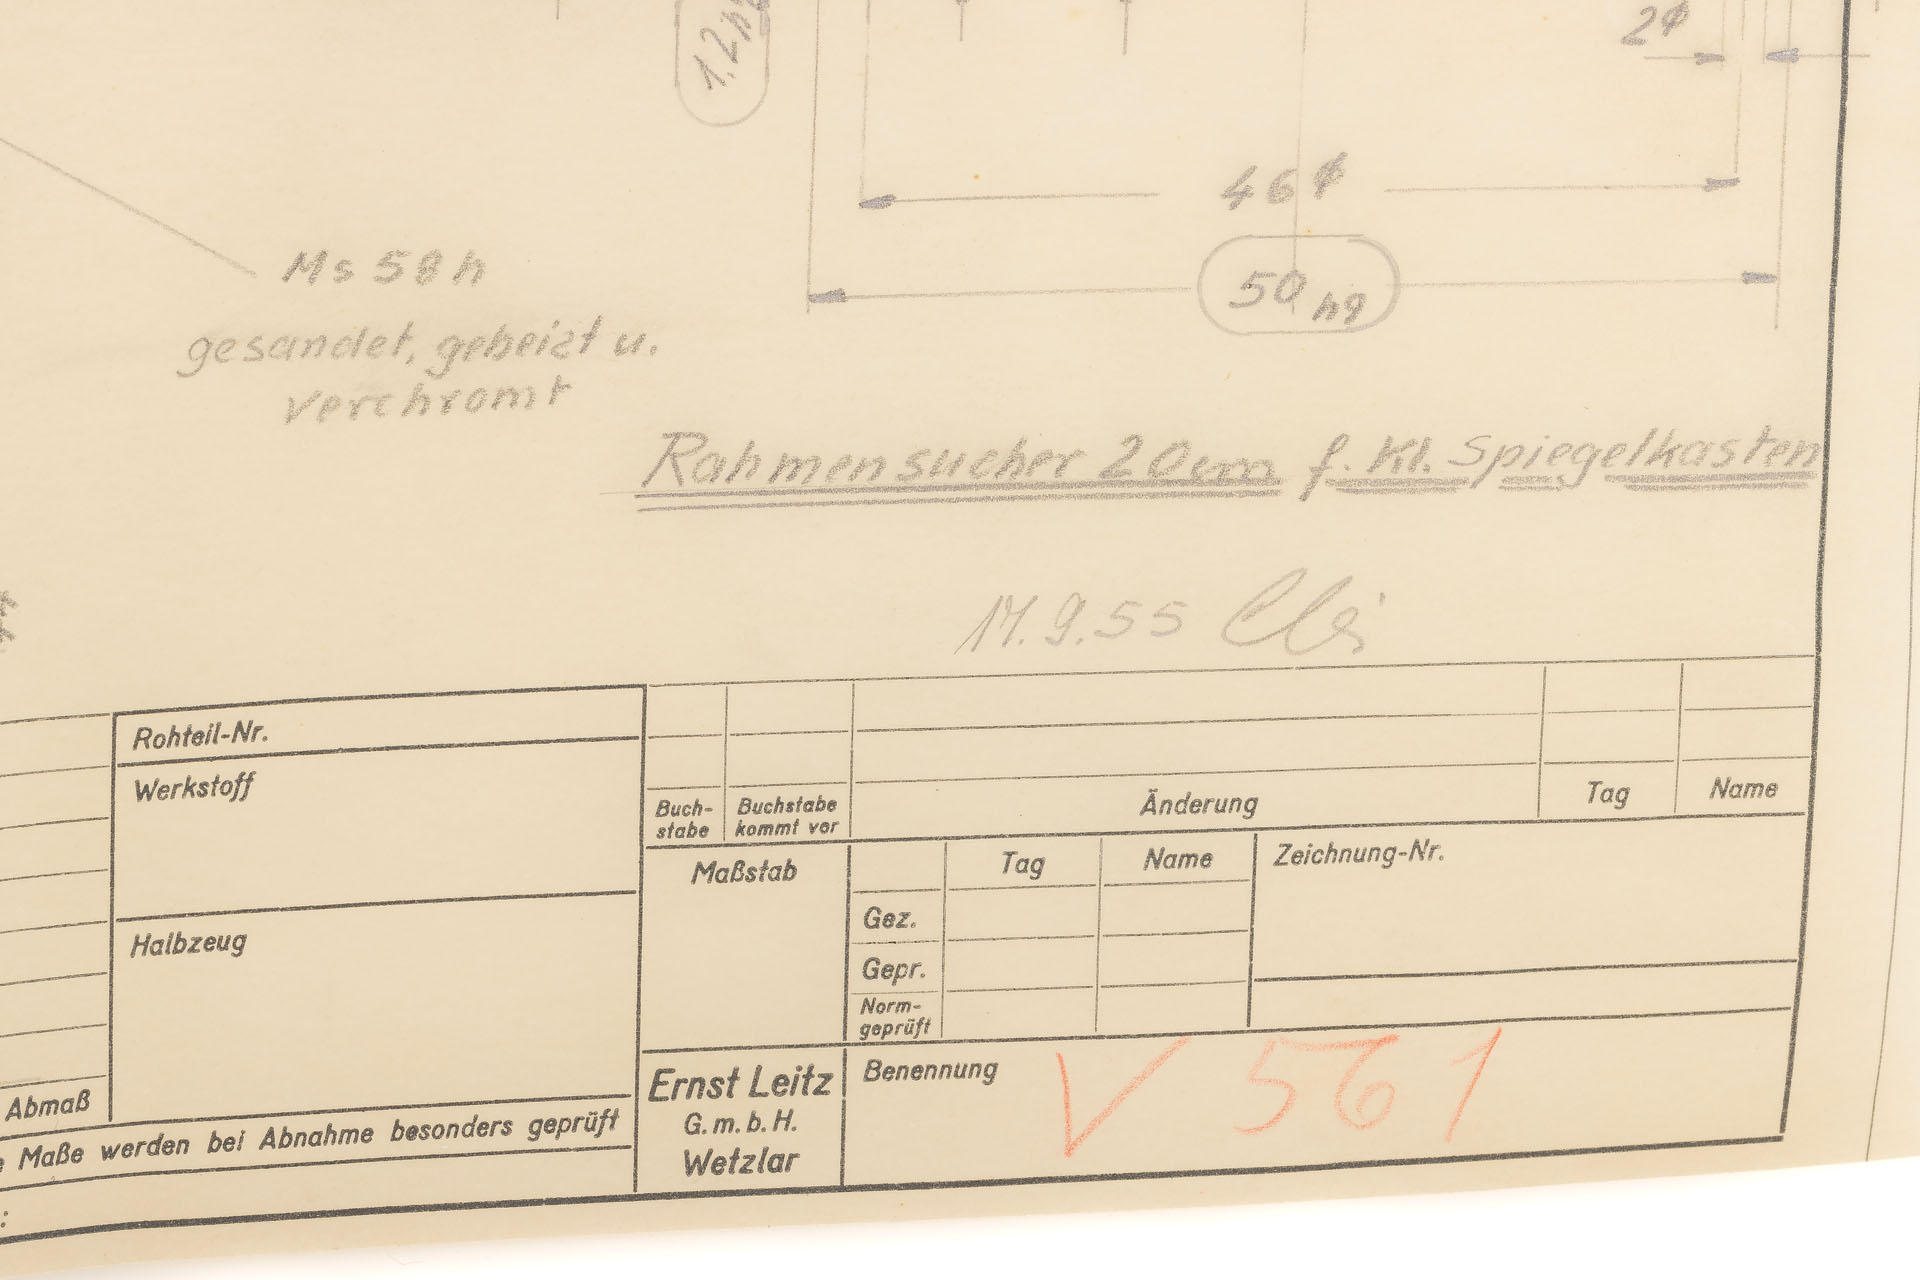 2⌀
46⌀
50 h9
Ms 58 h
gesandet, gebeizt u.
verchromt
Rahmensucher 20cm f. Kl. Spiegelkasten
17.9.55
Rohteil-Nr.
Werkstoff
Halbzeug
Buch-
stabe
Buchstabe
kommt vor
Änderung
Tag
Name
Maßstab
Tag
Name
Zeichnung-Nr.
Gez.
Gepr.
Norm-
geprüft
Abmaß
Maße werden bei Abnahme besonders geprüft
Ernst Leitz
G.m.b.H.
Wetzlar
Benennung
V 561